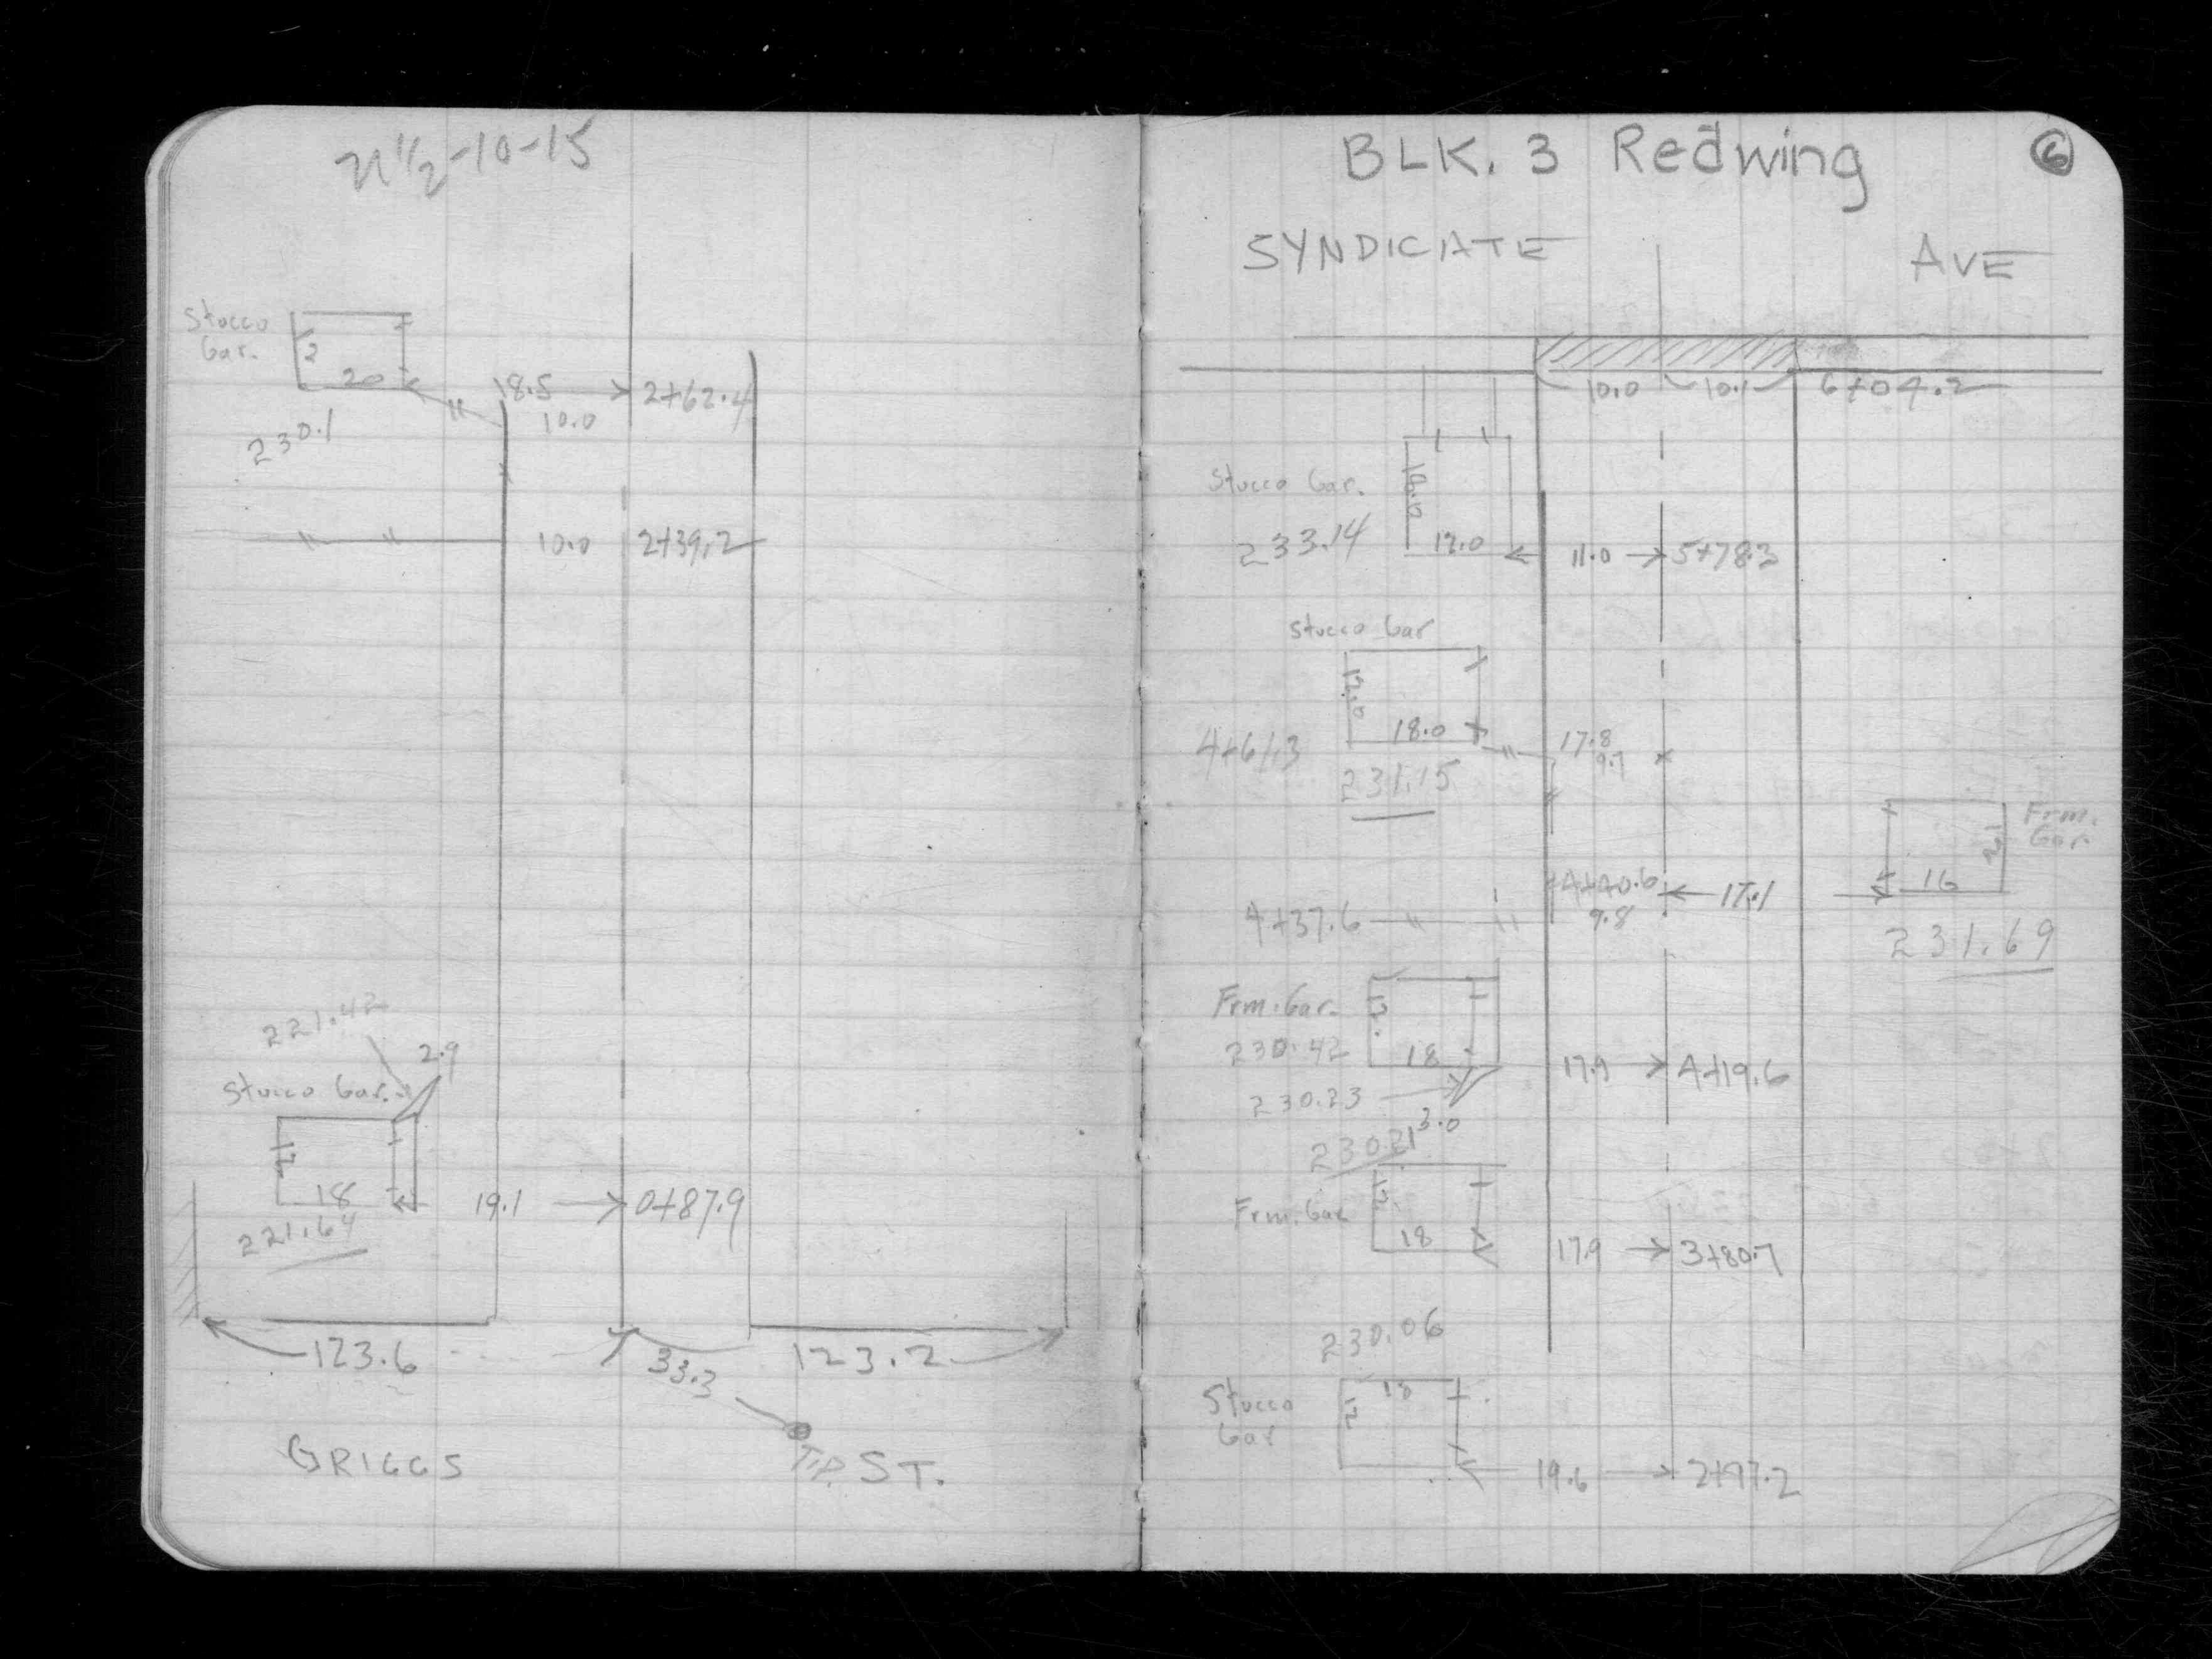 21 1/2-10-15
Stucco
Gar.
12
20
18.5 → 2+62.4
10.0
230.1
10.0 2+39.2
221.42
2.9
Stucco Gar.
12
18
19.1 → 0+87.9
221.64
123.6
33.3
123.2
GRIGGS
ST.
BLK. 3 Redwing
6
SYNDICATE AVE
10.0 10.1 6+04.2
Stucco Gar.
18.0
233.14
12.0
11.0 → 5+78.3
Stucco Gar
12.0
18.0
4+61.3
17.8
9.7
231.15
Frm.
Gar.
12
16
4+40.6 ← 17.1
4+37.6
9.8
231.69
Frm. Gar.
12
230.42
18
17.9 → 4+19.6
230.23
3.0
230.21
12
Frm. Gar
18
17.9 → 3+80.7
230.06
Stucco
Gar
18
12
19.6 → 2+97.2